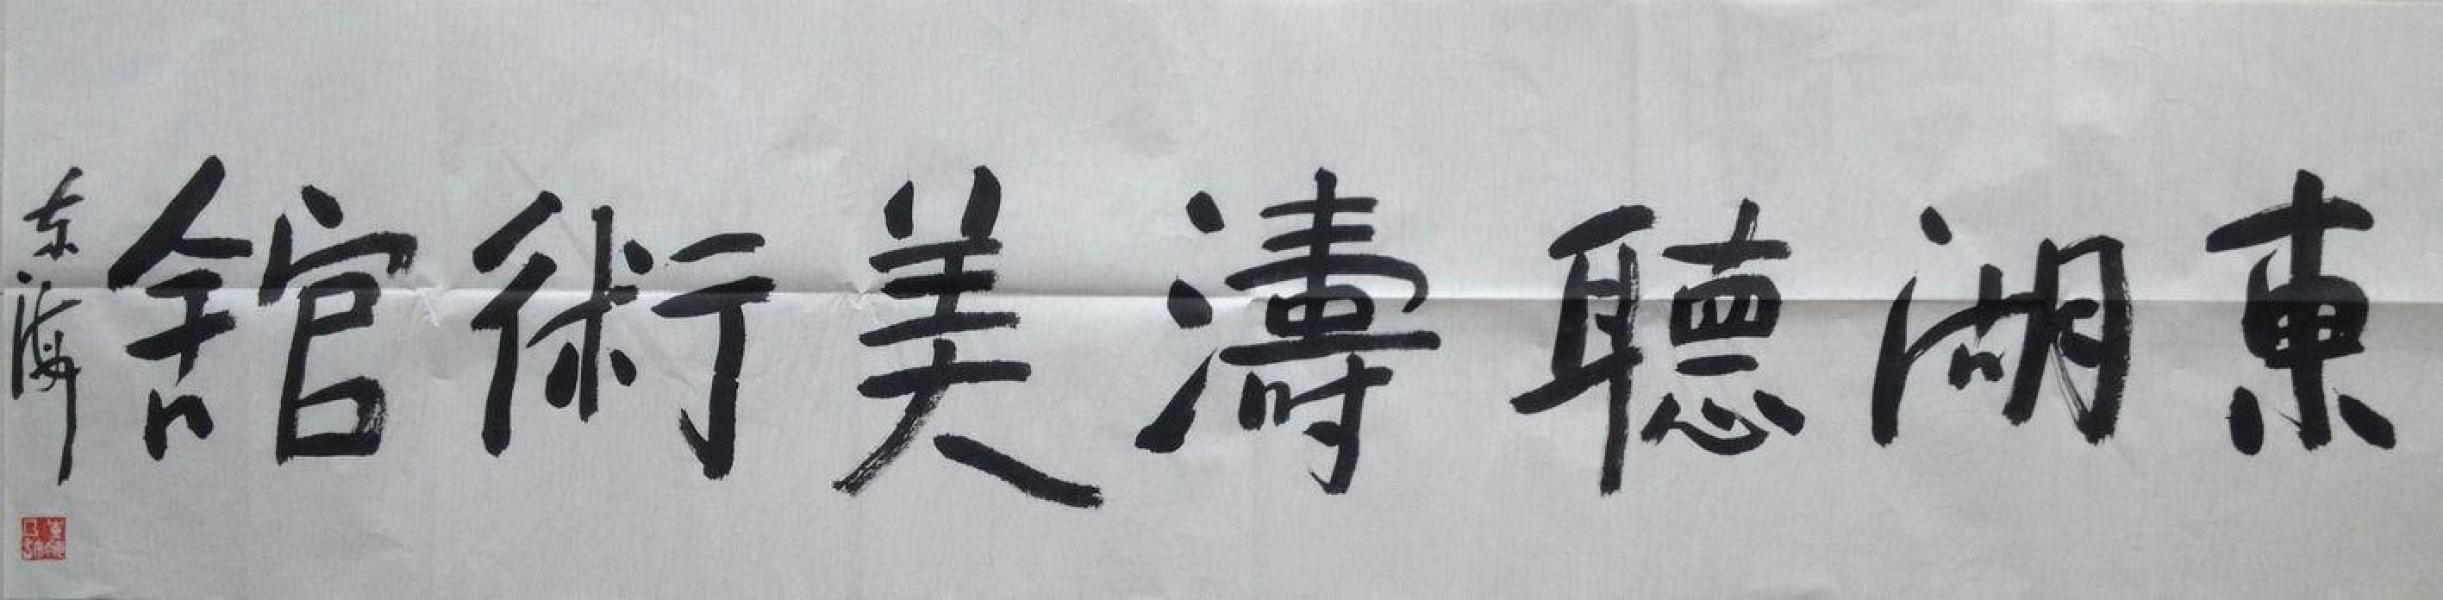 東湖聽濤美術館
东海